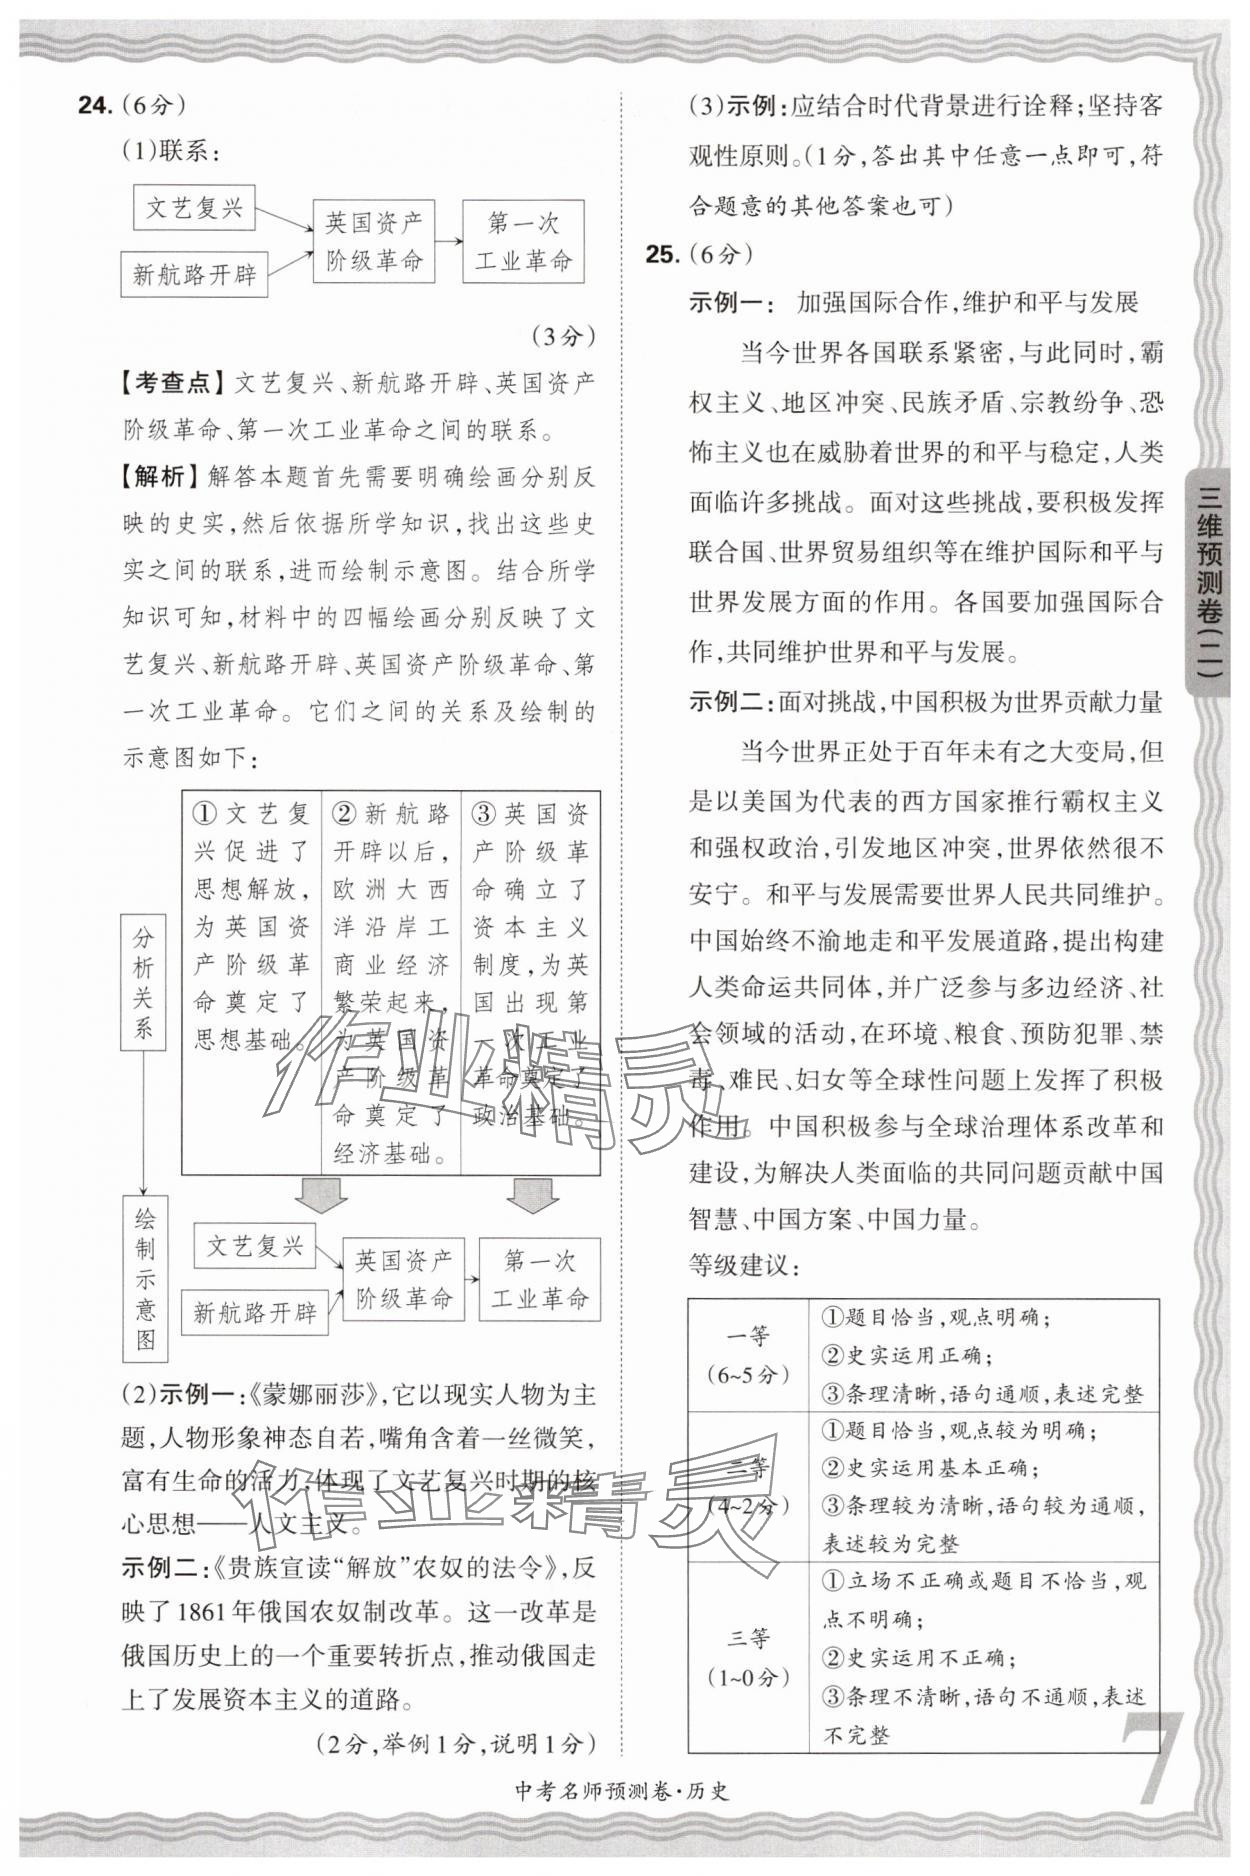 24.(6分)
(1)联系:
文艺复兴
新航路开辟
英国资产
阶级革命
第一次
工业革命
(3分)
【考查点】文艺复兴、新航路开辟、英国资产
阶级革命、第一次工业革命之间的联系。
【解析】解答本题首先需要明确绘画分别反
映的史实,然后依据所学知识,找出这些史
实之间的联系,进而绘制示意图。结合所学
知识可知,材料中的四幅绘画分别反映了文
艺复兴、新航路开辟、英国资产阶级革命、第
一次工业革命。它们之间的关系及绘制的
示意图如下:
分析关系
①文艺复
兴促进了
思想解放,
为英国资
产阶级革
命奠定了
思想基础。
②新航路
开辟以后,
欧洲大西
洋沿岸工
商业经济
繁荣起来,
为英国资
产阶级革
命奠定了
经济基础。
③英国资
产阶级革
命确立了
资本主义
制度,为英
国出现第
一次工业
革命奠定了
政治基础。
绘制示意图
文艺复兴
新航路开辟
英国资产
阶级革命
第一次
工业革命
(2)示例一:《蒙娜丽莎》,它以现实人物为主
题,人物形象神态自若,嘴角含着一丝微笑,
富有生命的活力,体现了文艺复兴时期的核
心思想——人文主义。
示例二:《贵族宣读“解放”农奴的法令》,反
映了1861年俄国农奴制改革。这一改革是
俄国历史上的一个重要转折点,推动俄国走
上了发展资本主义的道路。
(2分,举例1分,说明1分)
(3)示例:应结合时代背景进行诠释;坚持客
观性原则。(1分,答出其中任意一点即可,符
合题意的其他答案也可)
25.(6分)
示例一: 加强国际合作,维护和平与发展
当今世界各国联系紧密,与此同时,霸
权主义、地区冲突、民族矛盾、宗教纷争、恐
怖主义也在威胁着世界的和平与稳定,人类
面临许多挑战。面对这些挑战,要积极发挥
联合国、世界贸易组织等在维护国际和平与
世界发展方面的作用。各国要加强国际合
作,共同维护世界和平与发展。
示例二:面对挑战,中国积极为世界贡献力量
当今世界正处于百年未有之大变局,但
是以美国为代表的西方国家推行霸权主义
和强权政治,引发地区冲突,世界依然很不
安宁。和平与发展需要世界人民共同维护。
中国始终不渝地走和平发展道路,提出构建
人类命运共同体,并广泛参与多边经济、社
会领域的活动,在环境、粮食、预防犯罪、禁
毒、难民、妇女等全球性问题上发挥了积极
作用。中国积极参与全球治理体系改革和
建设,为解决人类面临的共同问题贡献中国
智慧、中国方案、中国力量。
等级建议:
一等
(6~5分)
①题目恰当,观点明确;
②史实运用正确;
③条理清晰,语句通顺,表述完整
二等
(4~2分)
①题目恰当,观点较为明确;
②史实运用基本正确;
③条理较为清晰,语句较为通顺,
表述较为完整
三等
(1~0分)
①立场不正确或题目不恰当,观
点不明确;
②史实运用不正确;
③条理不清晰,语句不通顺,表述
不完整
三维预测卷(二)
中考名师预测卷·历史
7
作业精灵
作业精灵